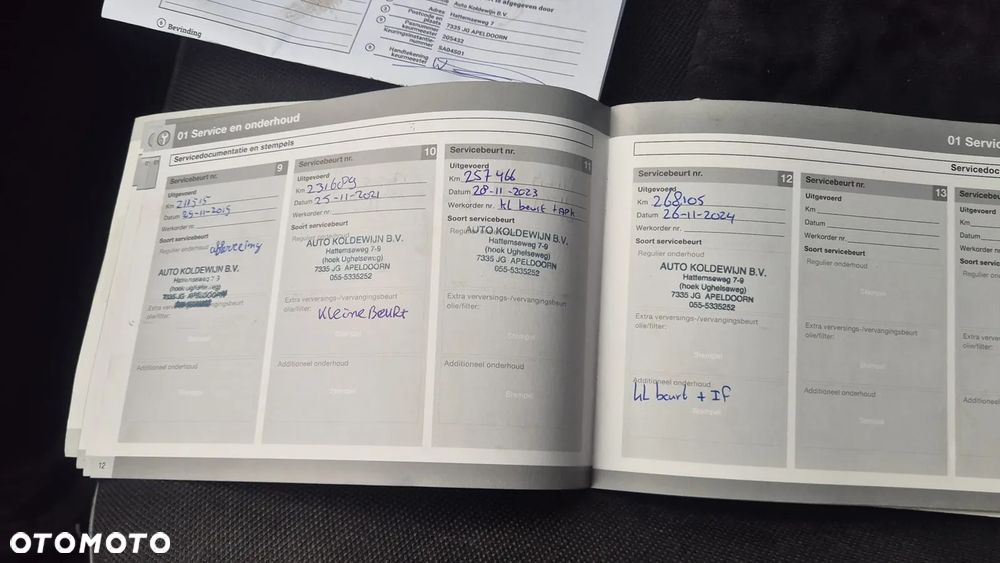 is afgegeven door
Auto Koldewijn B.V.
Adres
Hattemseweg 7
Postcode en
plaats
7335 JG APELDOORN
Pasnummer
keurmeester
205432
Keuringsinstantie-
nummer
SA04S01
Handtekening
keurmeester
6 Bevinding
01 Service en onderhoud
Servicedocumentatie en stempels
Servicebeurt nr. 9
Uitgevoerd
Km
Datum 25-11-2019
Werkorder nr.
Soort servicebeurt
Regulier onderhoud aflevering
AUTO KOLDEWIJN B.V.
Hattemseweg 7-9
(hoek Ughelseweg)
7335 JG APELDOORN
olie/filter:
Stempel
Additioneel onderhoud
Stempel
12
Servicebeurt nr. 10
Uitgevoerd
Km 231689
Datum 25-11-2021
Werkorder nr.
Soort servicebeurt
AUTO KOLDEWIJN B.V.
Hattemseweg 7-9
(hoek Ughelseweg)
7335 JG APELDOORN
055-5335252
Extra verversings-/vervangingsbeurt
olie/filter: Kleine Beurt
Stempel
Additioneel onderhoud
Stempel
Servicebeurt nr. 11
Uitgevoerd
Km 257466
Datum 28-11-2023
Werkorder nr. kl beurt + apk
Soort servicebeurt
AUTO KOLDEWIJN B.V.
Hattemseweg 7-9
(hoek Ughelseweg)
7335 JG APELDOORN
055-5335252
Extra verversings-/vervangingsbeurt
olie/filter:
Stempel
Additioneel onderhoud
Stempel
01 Servic
Servicedoc
Servicebeurt nr. 12
Uitgevoerd
Km 268105
Datum 26-11-2024
Werkorder nr.
Soort servicebeurt
Regulier onderhoud
AUTO KOLDEWIJN B.V.
Hattemseweg 7-9
(hoek Ughelseweg)
7335 JG APELDOORN
055-5335252
Extra verversings-/vervangingsbeurt
olie/filter:
Stempel
Additioneel onderhoud
kl beurt + IF
Stempel
Servicebeurt nr. 13
Uitgevoerd
Km
Datum
Werkorder nr.
Soort servicebeurt
Regulier onderhoud
Stempel
Extra verversings-/vervangingsbeurt
olie/filter:
Stempel
Additioneel onderhoud
Stempel
Servicebeurt
Uitgevoerd
Km
Datum
Werkorder
Soort service
Regulier
Extra verve
olie/filter:
Additioneel
OTOMOTO